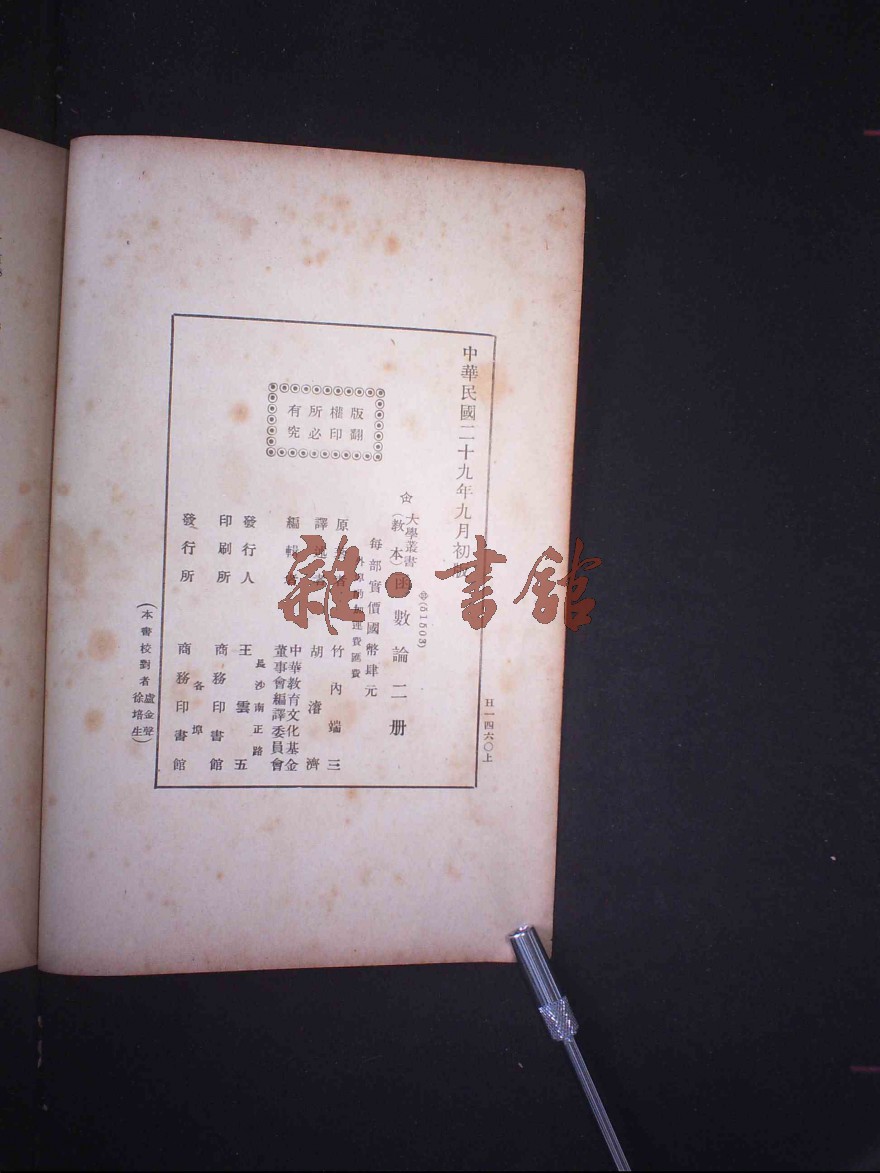 中華民國二十九年九月初版
H一四六〇上
(51503)
大學叢書
(教本)
函數論二册
每部實價國幣肆元
運費匯費
版權所有
翻印必究
原著者 竹內端三
譯述者 胡濬濟
編輯者 中華教育文化基金
董事會編譯委員會
長沙南正路
發行人 王雲五
印刷所 商務印書館
各埠
發行所 商務印書館
(本書校對者盧金聲
徐培生)
雜·書館